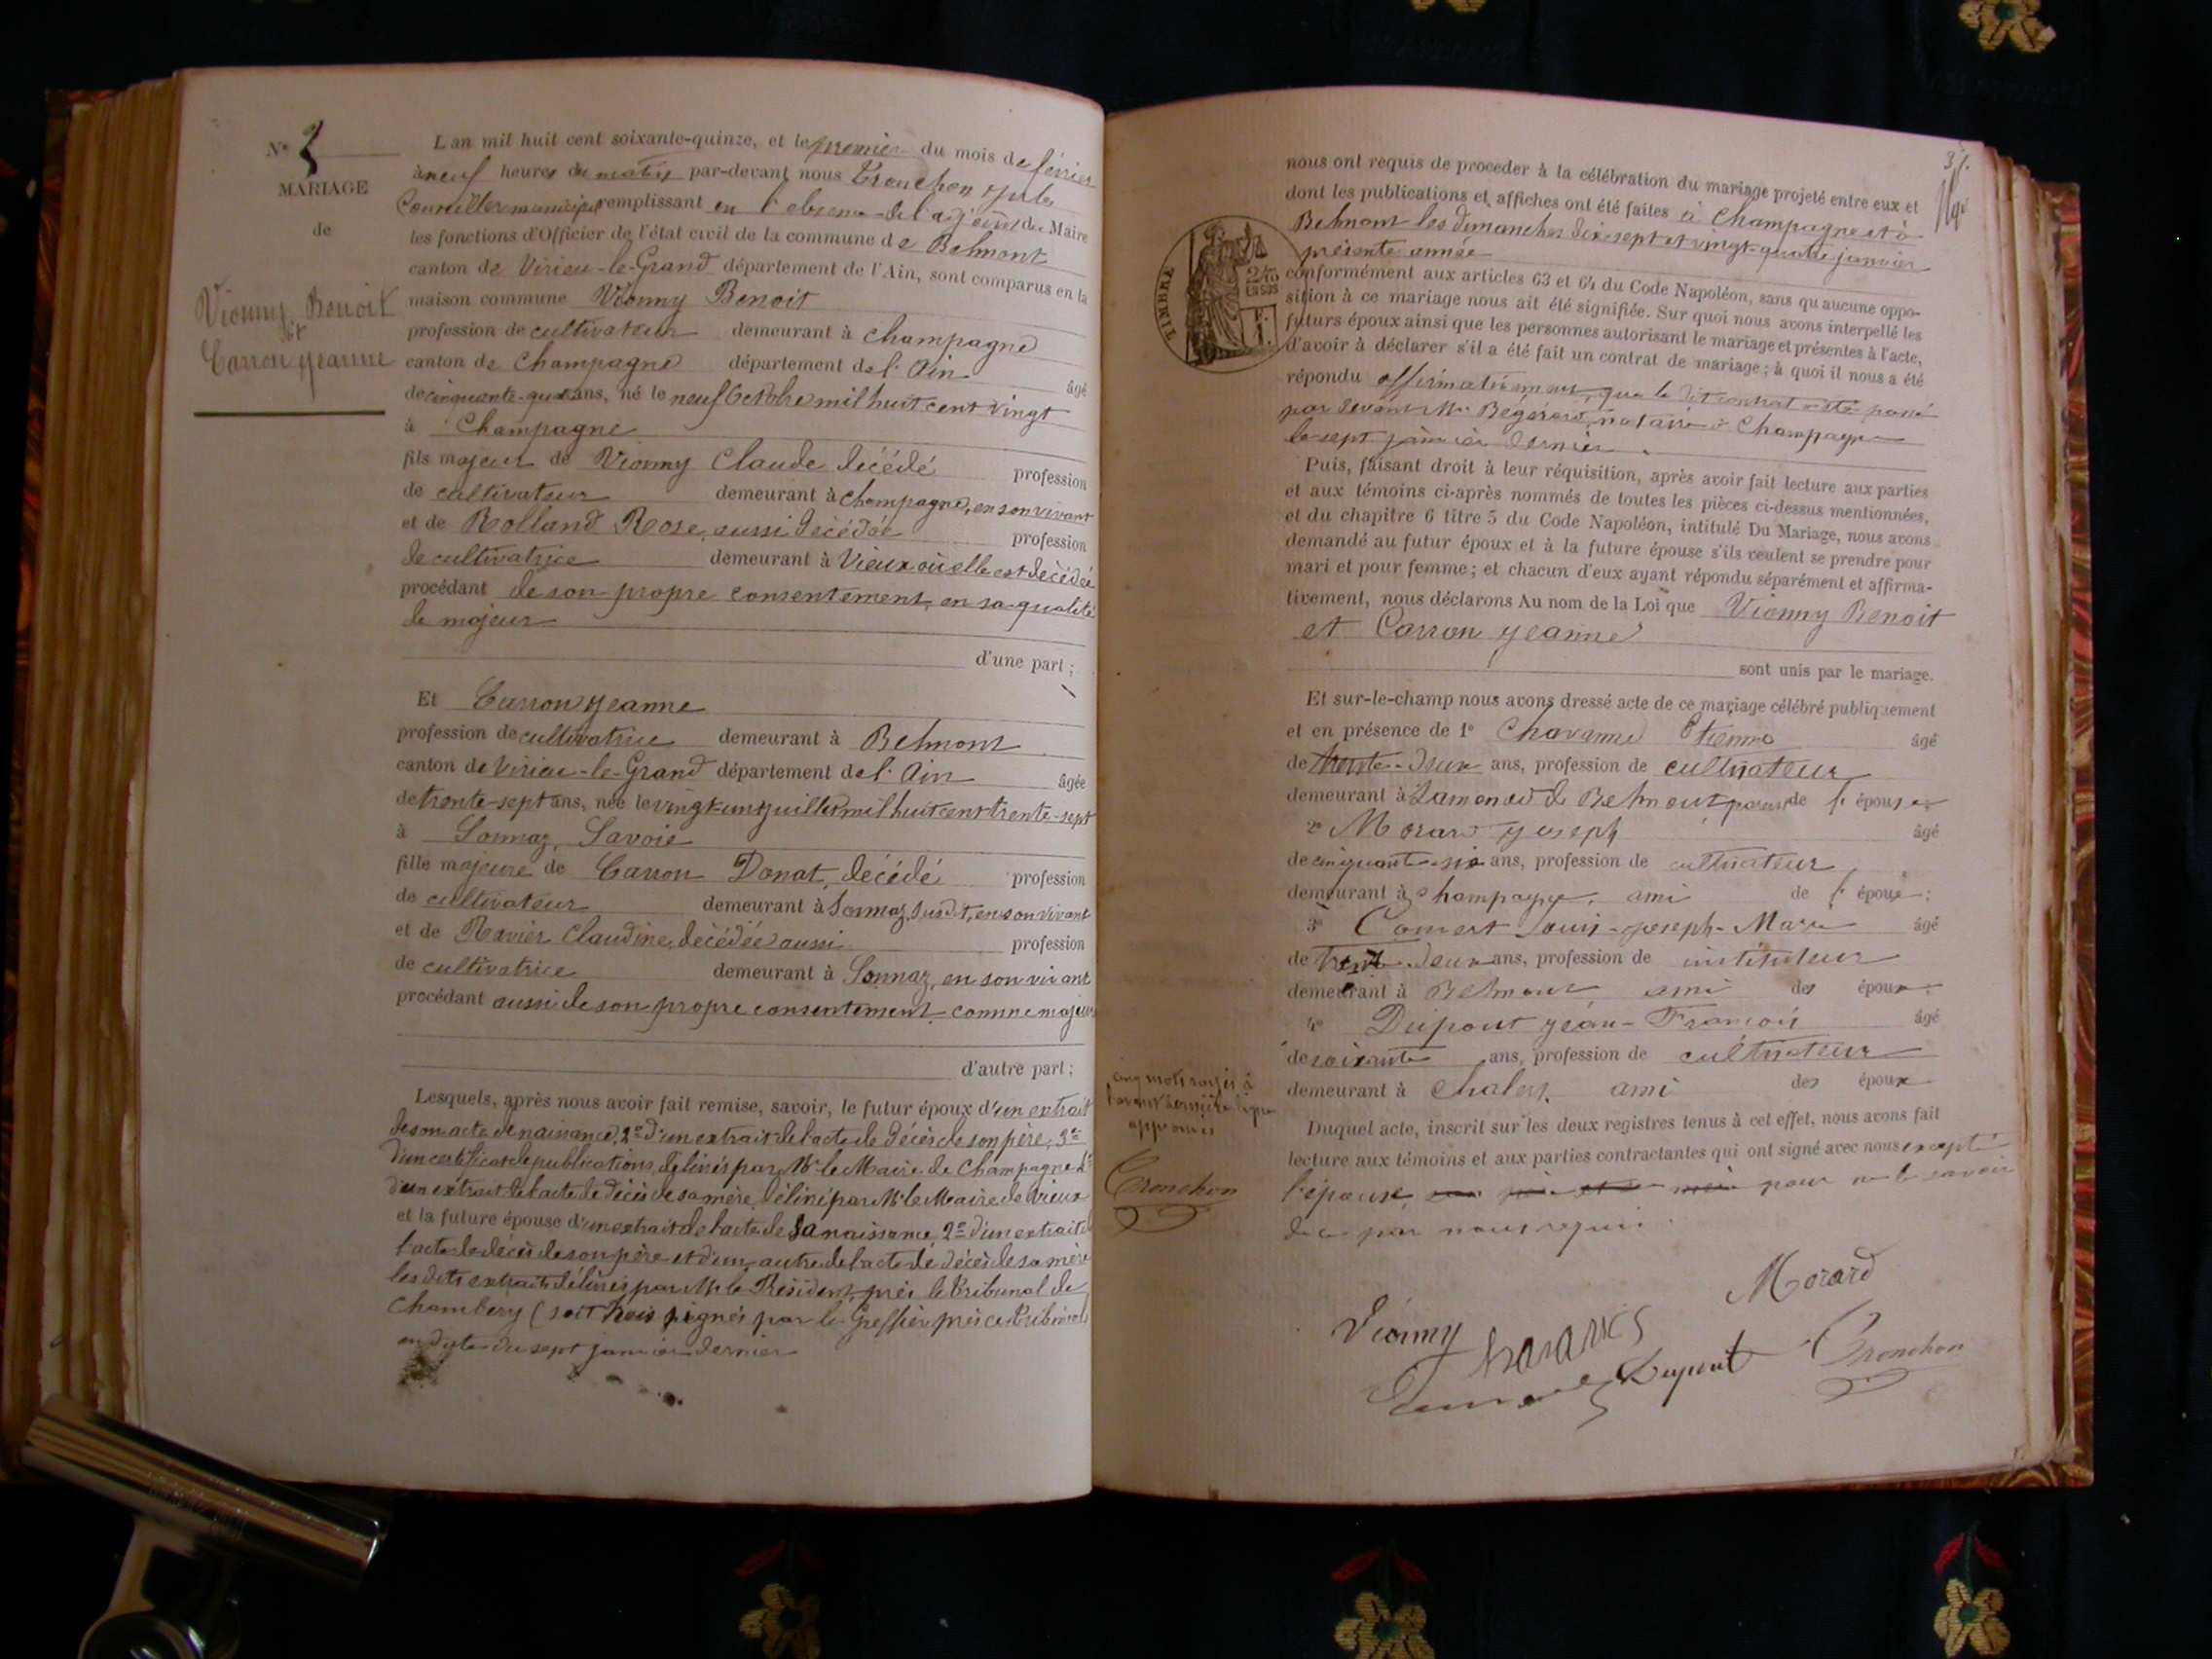 N° 3
MARIAGE
de
Vionny Benoit
et
Carron Jeanne
L'an mil huit cent soixante-quinze, et le premier du mois de février
à neuf heures du matin par-devant nous Tronchon Jules
Conseiller municipal remplissant en l'absence de l'adjoint du Maire
les fonctions d'Officier de l'état civil de la commune de Belmont
canton de Virieu-le-Grand département de l'Ain, sont comparus en la
maison commune Vionny Benoit
profession de cultivateur demeurant à Champagne
canton de Champagne département de l'Ain âgé
de cinquante-quatre ans, né le neuf octobre mil huit cent vingt
à Champagne
fils majeur de Vionny Claude décédé profession
de cultivateur demeurant à Champagne, en son vivant
et de Rolland Rose, aussi décédée profession
de cultivatrice demeurant à Vieux où elle est décédée
procédant de son propre consentement, en sa qualité
de majeur
d'une part ;
Et Carron Jeanne
profession de cultivatrice demeurant à Belmont
canton de Virieu-le-Grand département de l'Ain âgée
de trente-sept ans, née le vingt-un juillet mil huit cent trente-sept
à Sonnaz, Savoie
fille majeure de Carron Donat, décédé profession
de cultivateur demeurant à Sonnaz, susdit, en son vivant
et de Ravier Claudine, décédée aussi profession
de cultivatrice demeurant à Sonnaz, en son vivant
procédant aussi de son propre consentement comme majeure
d'autre part ;
Lesquels, après nous avoir fait remise, savoir, le futur époux d'un extrait
de son acte de naissance, 2° d'un extrait de l'acte de décès de son père, 3°
d'un certificat de publications, délivrés par Mr le Maire de Champagne 4°
d'un extrait de l'acte de décès de sa mère, délivré par Mr le Maire de Vieux
et la future épouse d'un extrait de l'acte de sa naissance, 2° d'un extrait de
l'acte de décès de son père et d'un autre de l'acte de décès de sa mère
les dits extraits délivrés par Mr le Président près le Tribunal de
Chambery (soit signés par le Greffier près ce Tribunal
en date du sept janvier dernier
37.
nous ont requis de procéder à la célébration du mariage projeté entre eux et
dont les publications et affiches ont été faites à Champagne et à
Belmont les dimanches dix-sept et vingt-quatre janvier
présente année
TIMBRE
conformément aux articles 63 et 64 du Code Napoléon, sans qu'aucune oppo-
sition à ce mariage nous ait été signifiée. Sur quoi nous avons interpellé les
futurs époux ainsi que les personnes autorisant le mariage et présentes à l'acte,
d'avoir à déclarer s'il a été fait un contrat de mariage ; à quoi il nous a été
répondu affirmativement, que le dit contrat a été passé
par devant Mr Bégérard, notaire à Champagne
le sept janvier dernier.
Puis, faisant droit à leur réquisition, après avoir fait lecture aux parties
et aux témoins ci-après nommés de toutes les pièces ci-dessus mentionnées,
et du chapitre 6 titre 5 du Code Napoléon, intitulé Du Mariage, nous avons
demandé au futur époux et à la future épouse s'ils veulent se prendre pour
mari et pour femme ; et chacun d'eux ayant répondu séparément et affirma-
tivement, nous déclarons Au nom de la Loi que Vionny Benoit
et Carron Jeanne
sont unis par le mariage.
Et sur-le-champ nous avons dressé acte de ce mariage célébré publiquement
et en présence de 1° Chavanne Etienne âgé
de trente-deux ans, profession de cultivateur
demeurant à de Belmont, de l'époux
2° Morard Joseph âgé
de cinquante-six ans, profession de cultivateur
demeurant à Champagne, ami de l'époux ;
3° Comert Louis-Joseph-Marie âgé
de trente-deux ans, profession de instituteur
demeurant à Belmont ami des époux ;
4° Dupont Jean-François âgé
de soixante ans, profession de cultivateur
demeurant à Chaley, ami des époux
Duquel acte, inscrit sur les deux registres tenus à cet effet, nous avons fait
lecture aux témoins et aux parties contractantes qui ont signé avec nous excepté
l'épouse, pour ne le savoir
de ce par nous requis.
cinq mots rayés à
l'avant dernière ligne
approuvés
Tronchon
Morard
Vionny
Dupont
Tronchon